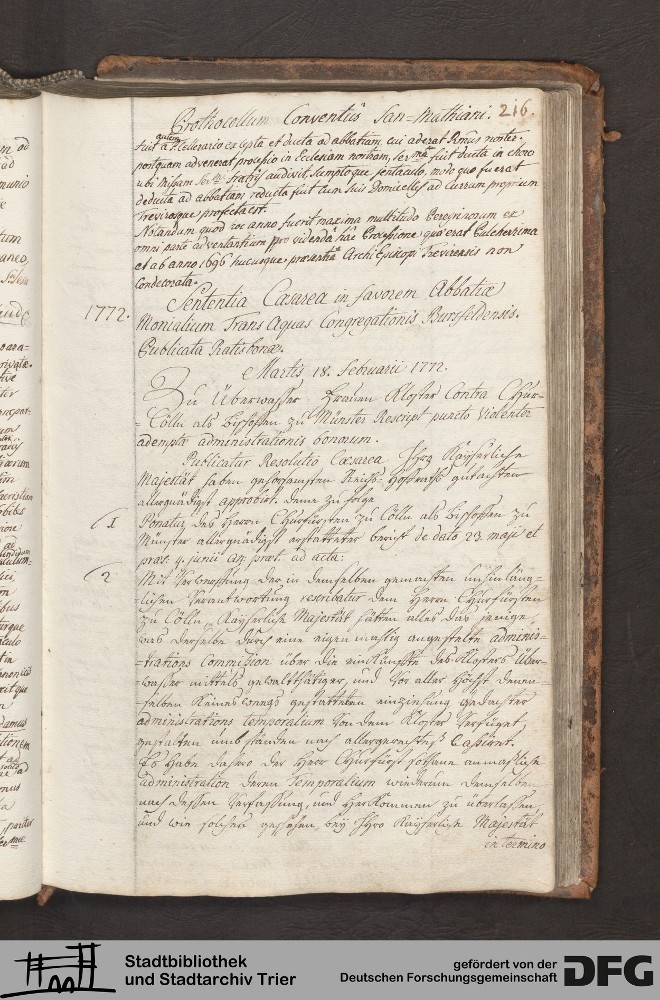 Prothocollum Conventûs San-Mathiani. 216.
autem
fuit a Cellerario excepta et ducta ad abbatiam, cui aderat Rmus noster.
postquam advenerat processio in Ecclesiam nostram, Ser ma fuit ducta in choro
ubi Missam Ser mi fratris audivit, sumptoque jentaculo, modo quo fuerat
deducta ad abbatiam reducta fuit cum suis Domicellis ad currum proprium
Trevirosque profecta est.
Notandum quod hoc anno fuerit maxima multitudo Peregrinorum ex
omni parte adventantium pro videnda hac Processione, quae erat Pulcherrima
et ab anno 1696 hucusque praesentia Archi Episkopi Trevirensis non
Condecorata.
1772.
Sententia Caesarea in favorem Abbatiae
Monialium Trans Aquas Congregationis Bursfeldensis.
Publicata Ratisbonae.
Martis 18. Februarii 1772.
Zu Überwasser Frauen Kloster Contra Chur-
-Cölln als Bischoffen zu Münster Rescript puncto Violenter
ademptae administrationis bonorum.
Publicatur Resolutio Caesarea Ihro Kayserliche
Majestät haben gehorsamsten Reichs-Hofraths gutachten
allergnädigst approbirt. deme zu folge
1
Ponatur des Herrn Churfürsten zu Cölln als Bischoffen zu
Münster allergnädigst erstatteter bericht de dato 23. maji et
praes. 4. junii an. praet. ad acta:
2
Mit Verwerffung der in demselben gemachten unhinläng-
-lichen Verantwortung rescribatur dem Herrn Churfürsten
zu Cölln, Kayserliche Majestät hätten alles das jenige,
was derselbe durch eine eigenmächtig angestelte adminis-
-trations commission über die einkünfte des Klosters Über-
-wasser mittels gewaltthätiger, und vor aller höchst denen-
-selben keines weegs gestatteten einziehung gedachter
administrations temporalium von dem Kloster verfüget
gestalten und ständen nach allergerechtest Cassiret.
Es habe dahero der Herr Churfürst sothane anmaßliche
administration deren Temporalium wiederum demselben
nach dessen Verfassung, und Herkommen zu überlassen,
und wie solches geschehen, bey Ihro Kayserliche Majestät
in termino
Stadtbibliothek
und Stadtarchiv Trier
gefördert von der
Deutschen Forschungsgemeinschaft
DFG